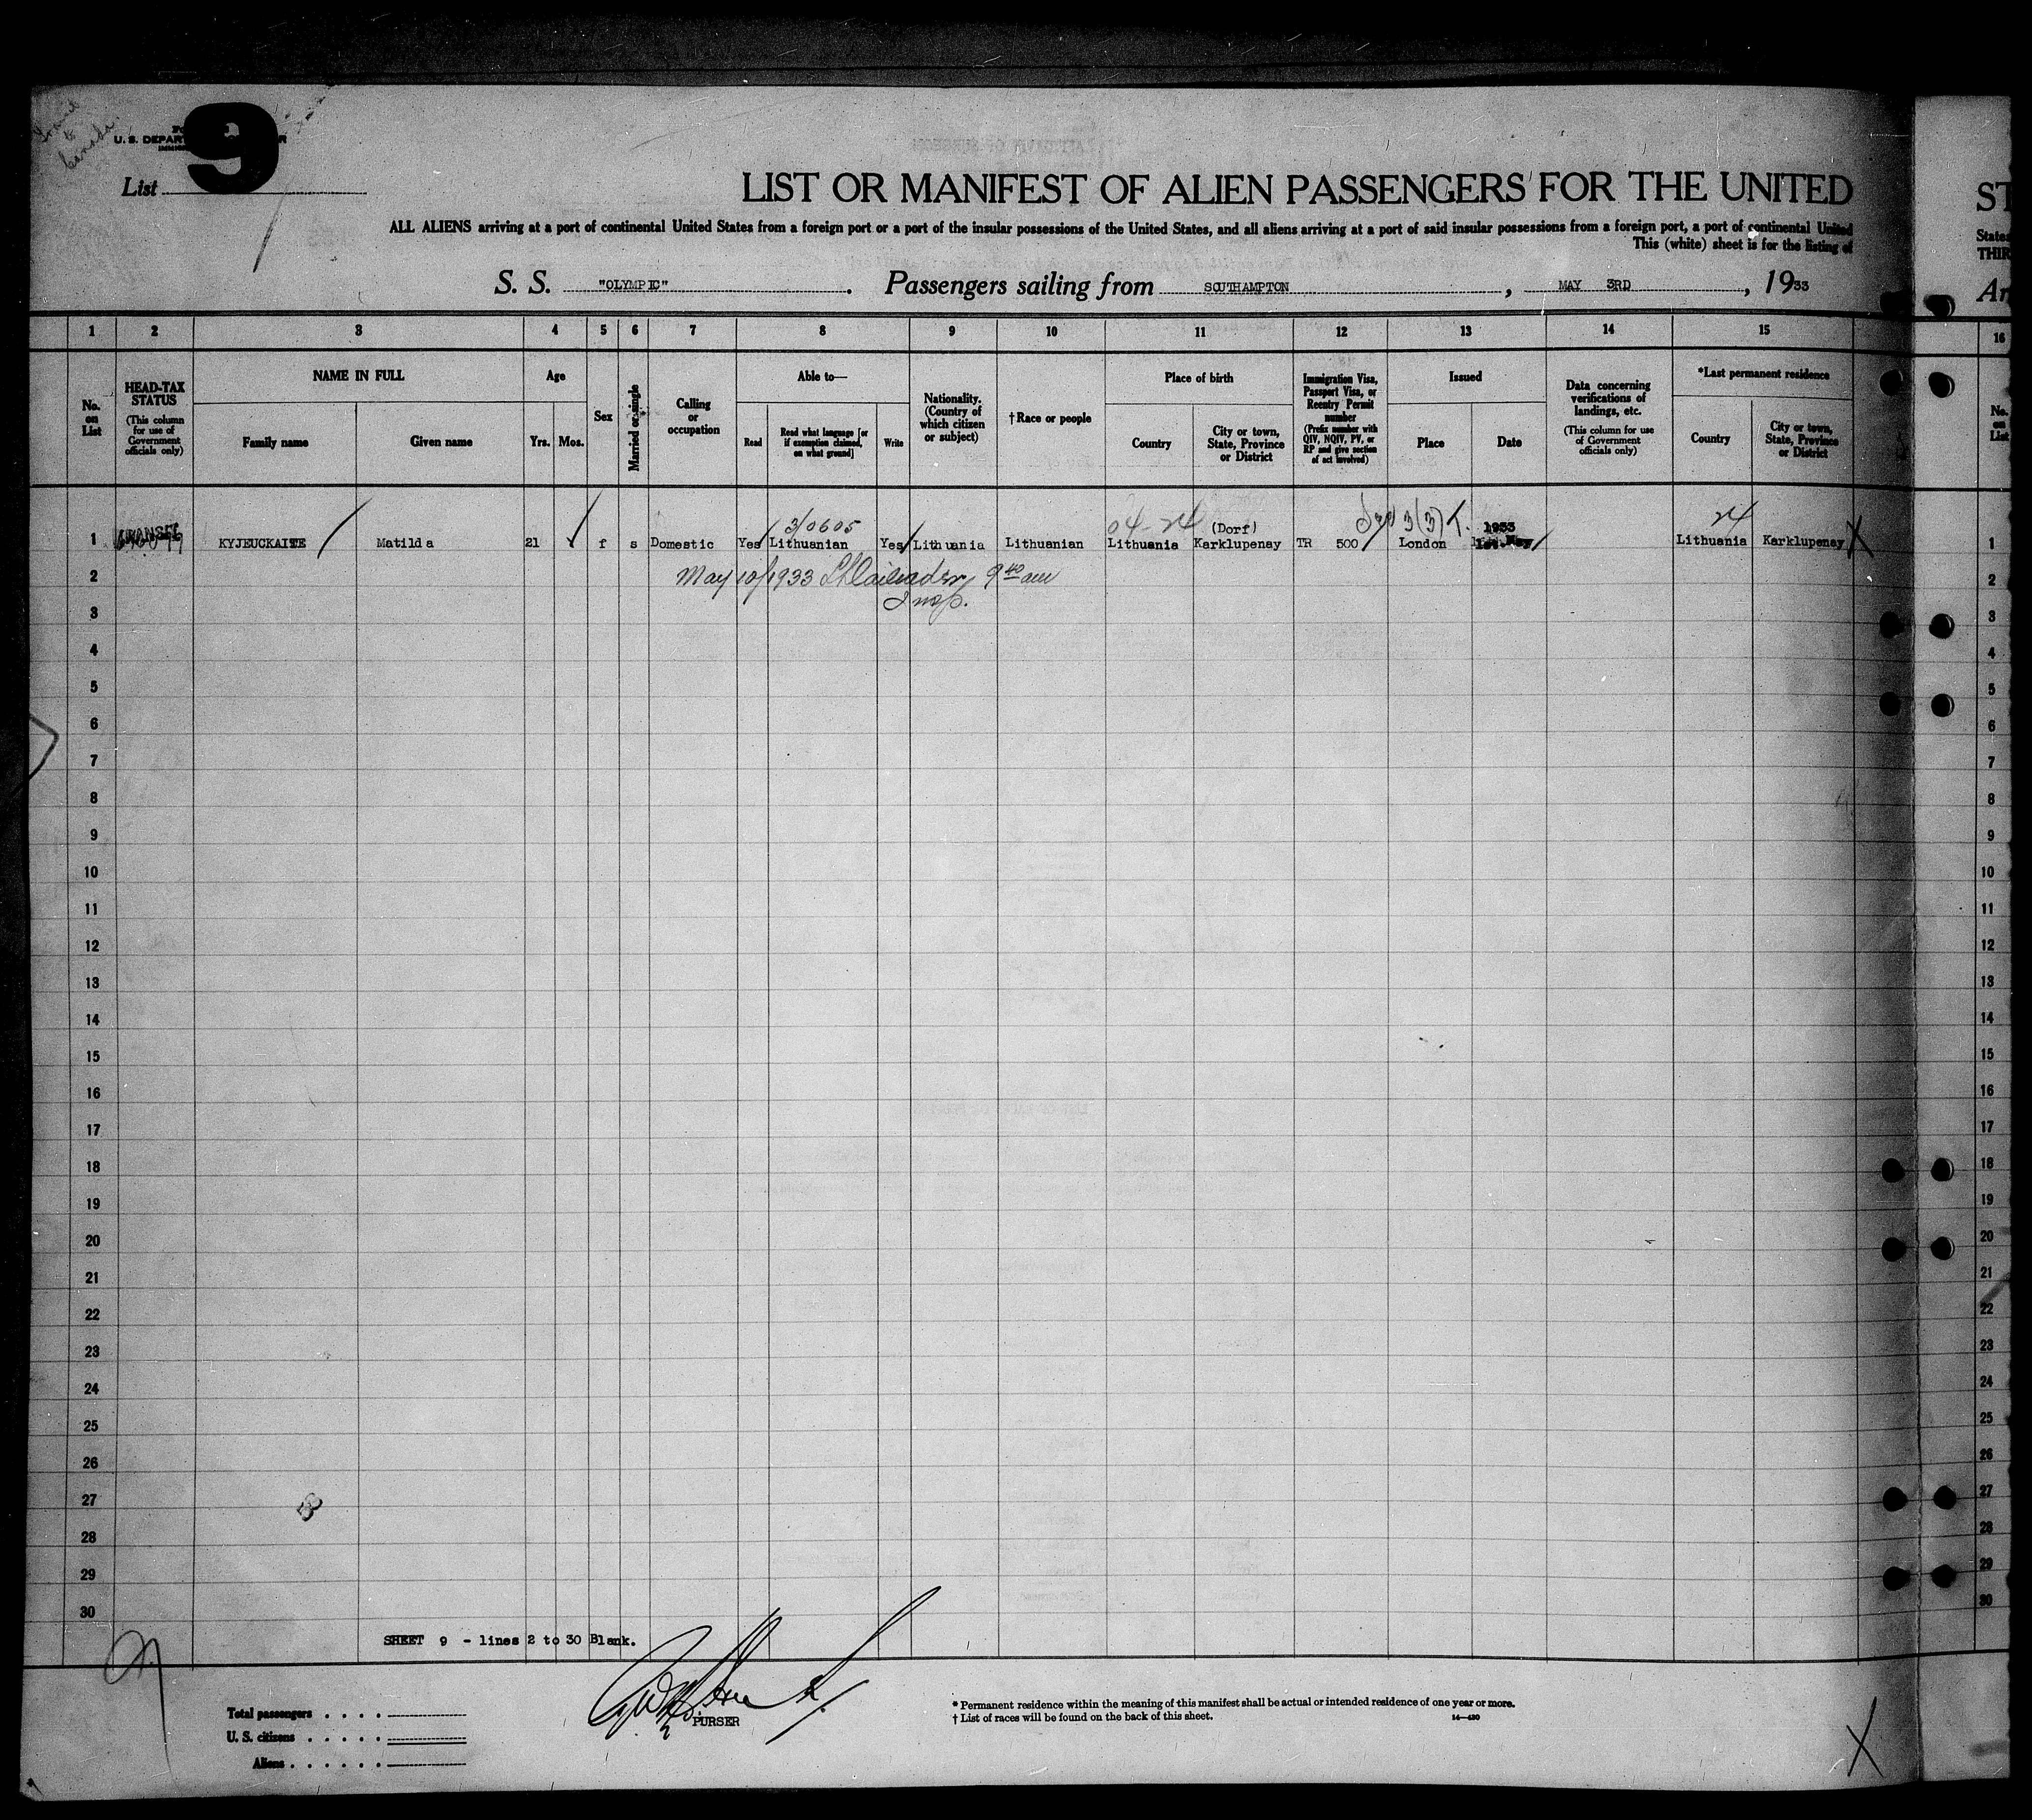 Transit
to
Canada
9
U. S. DEPAR
List
LIST OR MANIFEST OF ALIEN PASSENGERS FOR THE UNITED
ST
ALL ALIENS arriving at a port of continental United States from a foreign port or a port of the insular possessions of the United States, and all aliens arriving at a port of said insular possessions from a foreign port, a port of continental United
States
This (white) sheet is for the listing of
THIR
S. S. "OLYMPIC". Passengers sailing from SOUTHAMPTON, MAY 3RD, 1933
Ar
1 2 3 4 5 6 7 8 9 10 11 12 13 14 15 16
No. on List
HEAD-TAX STATUS
(This column for use of Government officials only)
NAME IN FULL
Family name
Given name
Age
Yrs. Mos.
Sex
Married or single
Calling or occupation
Able to—
Read
Read what language [or if exemption claimed, on what ground]
Write
Nationality. (Country of which citizen or subject)
†Race or people
Place of birth
Country
City or town, State, Province or District
Immigration Visa, Passport Visa, or Reentry Permit number
(Prefix number with QIV, NQIV, PV, or RP and give section of act involved)
Issued
Place
Date
Data concerning verifications of landings, etc.
(This column for use of Government officials only)
*Last permanent residence
Country
City or town, State, Province or District
No. on List
3/0605 04-24 (Dorf) 3(3) T. 1933 24
1 TRANSIT KYJEUCKAITE Matilda 21 f s Domestic Yes Lithuanian Yes Lithuania Lithuanian Lithuania Karklupenay TR 500 London 1st May Lithuania Karklupenay X 1
2 May 10/1933 9 40 am 2
Insp.
3 3
4 4
5 5
6 6
7 7
8 8
9 9
10 10
11 11
12 12
13 13
14 14
15 15
16 16
17 17
18 18
19 19
20 20
21 21
22 22
23 23
24 24
25 25
26 26
27 27
28 28
29 29
30 30
SHEET 9 - lines 2 to 30 Blank.
PURSER
Total passengers
U. S. citizens
Aliens
* Permanent residence within the meaning of this manifest shall be actual or intended residence of one year or more.
† List of races will be found on the back of this sheet.
14—430
X